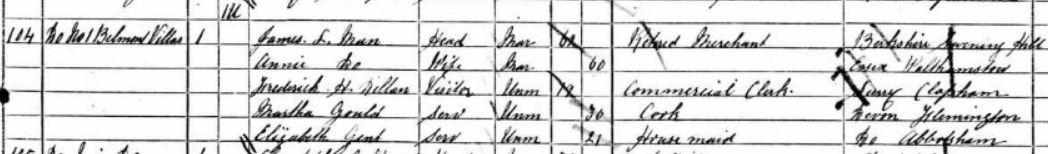 1M
104 Do No 1 Belmont Villas 1 James L. Man Head Mar 62 Retired Merchant Berkshire Hill
Annie Do Wife Mar 60 Essex Walthamstow
Frederick H. Dellan Visitor Unm 19 Commercial Clerk. Surry Clapham
Martha Gould Serv Unm 30 Cook Devon Hemington
Elizabeth Gent Serv Unm 21 House maid Do Abbotsham